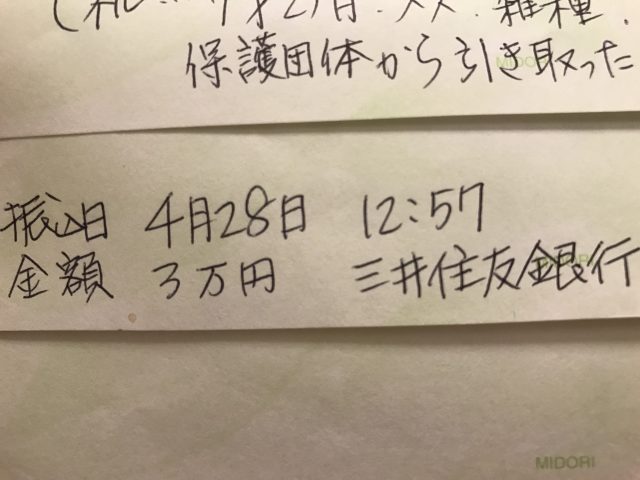 2才2ヶ月.メス.雑種.
保護団体から引き取った
振込日 4月28日 12:57
金額 3万円 三井住友銀行
MIDORI